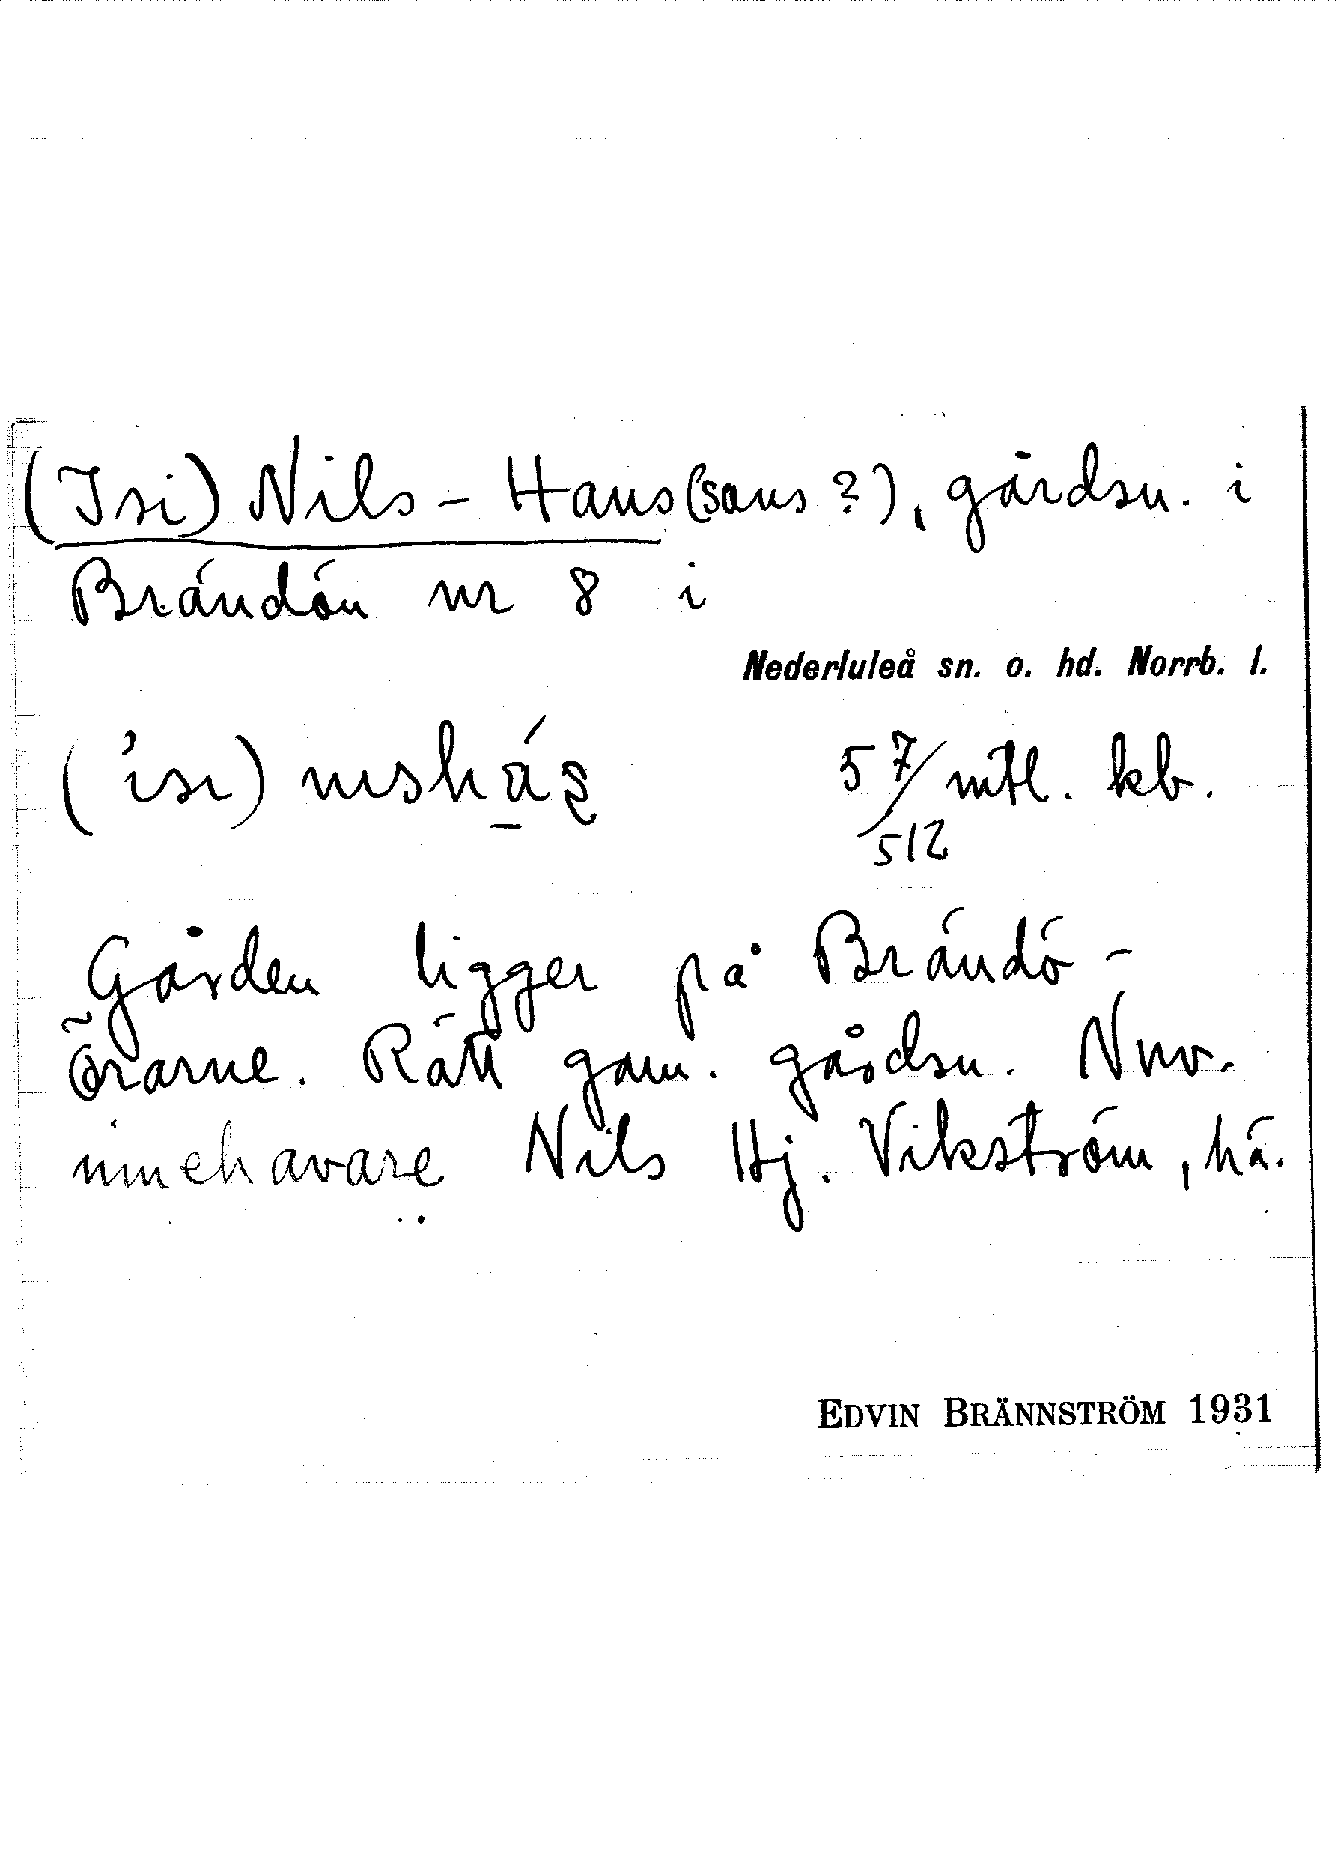 (Isi) Nils-Hans(sons?), gårdsn. i
Brändön nr 8 i
Nederluleå sn. o. hd. Norrb. l.
57/512 mtl. kb.
Gården ligger på Brändö-
örarne. Rätt gam. gårdsn. Nuv.
innehavare Nils Hj. Vikström, hä.
EDVIN BRÄNNSTRÖM 1931